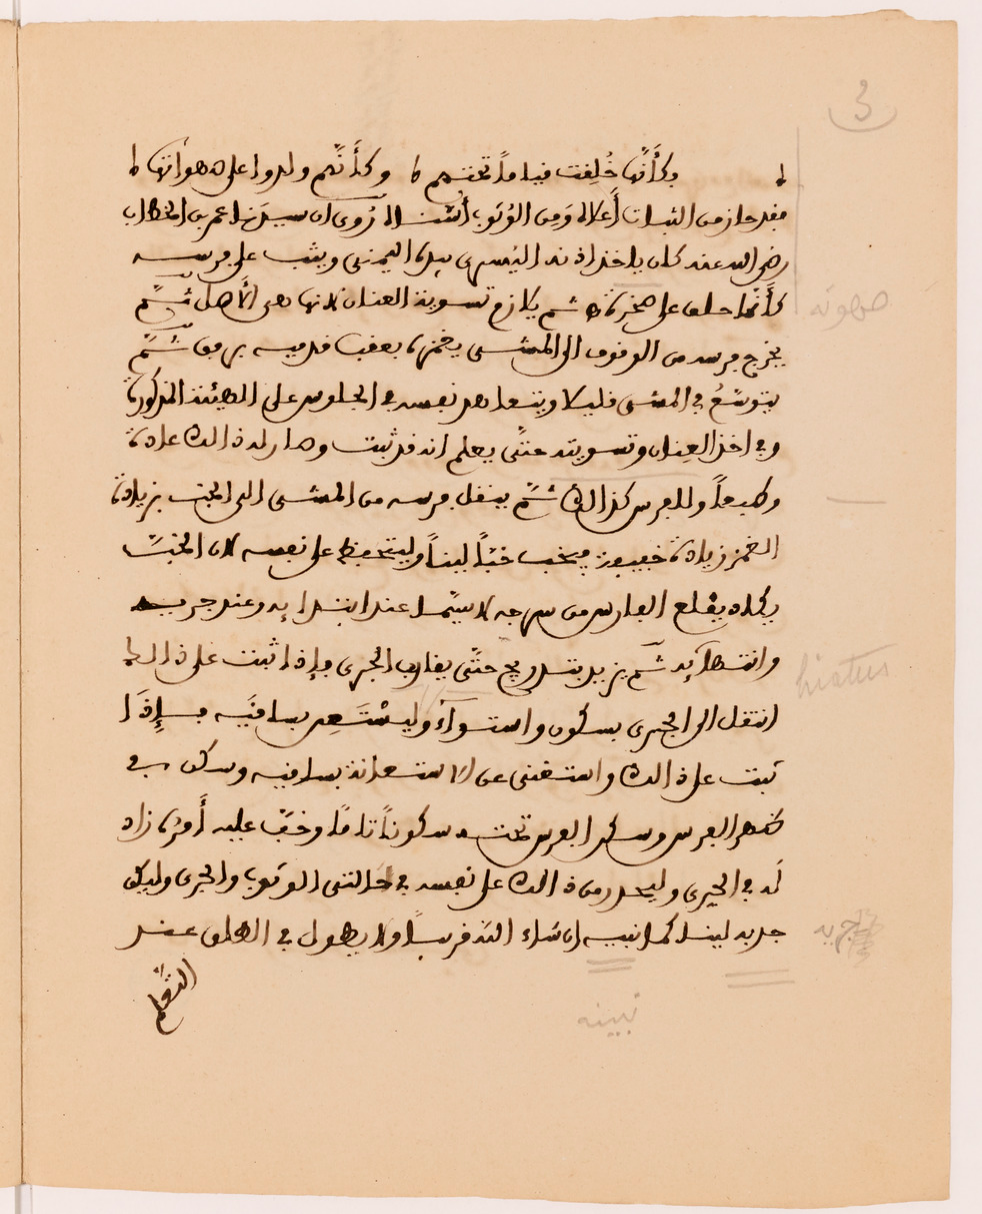 3
فكأنّها خُلِقت قياماً تحتهم ۵ وكأنّهم ولدوا على صهواتها
فقد حاز من الثبات أعلاه ومن الوُثوب أشده رُوى ان سيدنا عمر بن الخطاب
رضي الله عنه كان ياخذ اذنه اليُسرى بيده اليمنى ويثب على فرسه
كأنّما خلق على ثم يلازم تسوية العنان لانها هي الأصل ثمّ
صهوته
يخرج فرسه من الوقوف الى المشى يغمزه بعقب قدميه برفق ثمّ
يتوسّعُ في المشى قليلا ويتعاهد نفسه في الجلوس على الهيئة المذكورة
وفي اخذ العِنان وتسويته حتّى يعلم انه قد ثبت وصار له ذالك عادة
وطبعاً وللفرس كذالك ثمّ ينقل فرسه من المشى الى الخبب بزيادة
الغمز زيادة خفيفة فيخب خبّاً ليناً وليتحفظ على نفسه لان الخبّ
يكاد يقلع الفارس من سرجه لا سيّما عند ابتدايه وعند جريه
وانتهآيه ثمّ يزيد بتدريج حتّى يقارب الجرى فإذا ثبت على ذالك
hiatus
انتقل الى الجرى بسكون واستوآء وليشتَعِن بساقَيه فإِذَا
ثبت على ذالك واستغنى عن الاستعانة بساقيه وسكن في
ظهر الفرس وسكن الفرس تحته سكوناً تامّاً وخفّ عليه أَمرُه زاد
له في الجرى وليحذر من ذالك على نفسه في حالتى الوثوب والجرى وليكن
جريه لينا كما نبينه ان شاء الله قريباً ولا يطول في الطلق عند
جريه
التعلّم
نبينه